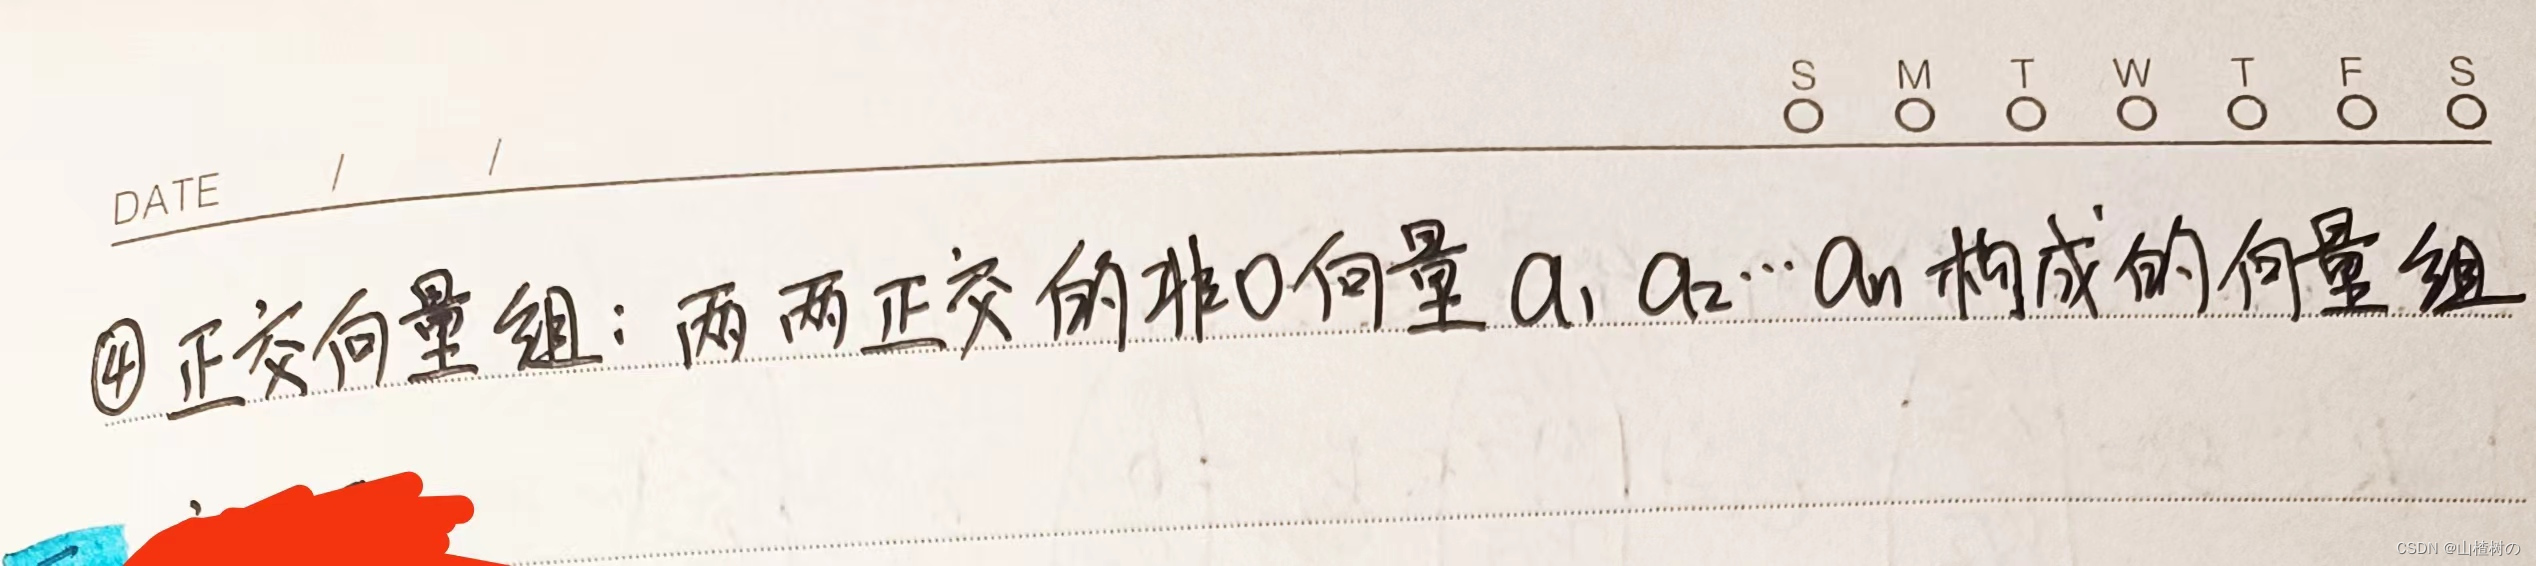 S M T W T F S
DATE / /
④正交向量组：两两正交的非0向量 a₁ a₂…aₙ 构成的向量组
CSDN @山楂树の